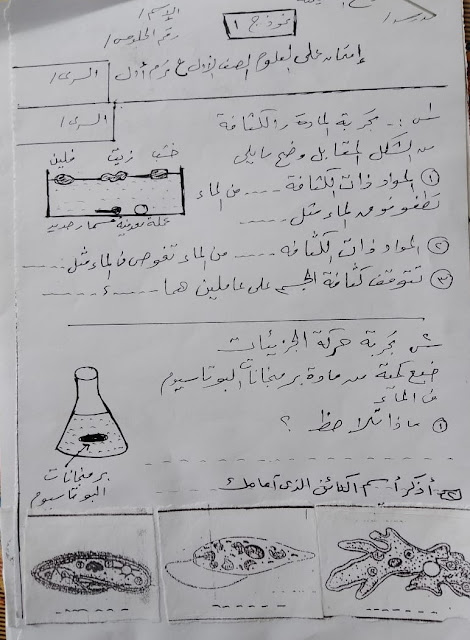 مدرسة /
الإسم /
نموذج ١
رقم الجلوس /
إمتحان عملى العلوم الصف الأول ع ترم أول
السرى /
السرى /
س١ :- تجربة المادة والكثافة
من الشكل المقابل وضح ما يلى
خشب زيت فلين
عملة معدنية مسمار حديد
① المواد ذات الكثافة ---- من الماء
تطفو فوق الماء مثل ------
② المواد ذات الكثافة ---- من الماء تغوص فى الماء مثل ------
③ تتوقف كثافة الجسم على عاملين هما ----- ، -----
س٢ تجربة حركة الجزيئات
ضع كمية من مادة برمنجانات البوتاسيوم
فى الماء
① ماذا تلاحظ ؟
برمنجانات
البوتاسيوم
س٣ - أذكر أسم الكائن الذى أمامك